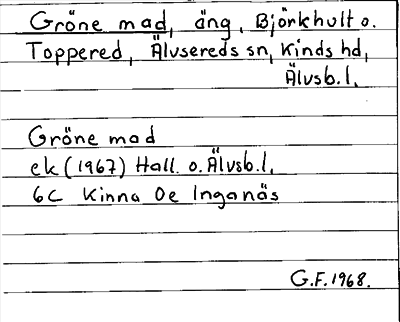 Gröne mad, äng, Björkhult o.
Toppered, Älvsereds sn, Kinds hd,
Älvsb.l.
Gröne mad
ek (1967) Hall. o. Älvsb.l.
6C Kinna 0e Inganäs
G.F. 1968.